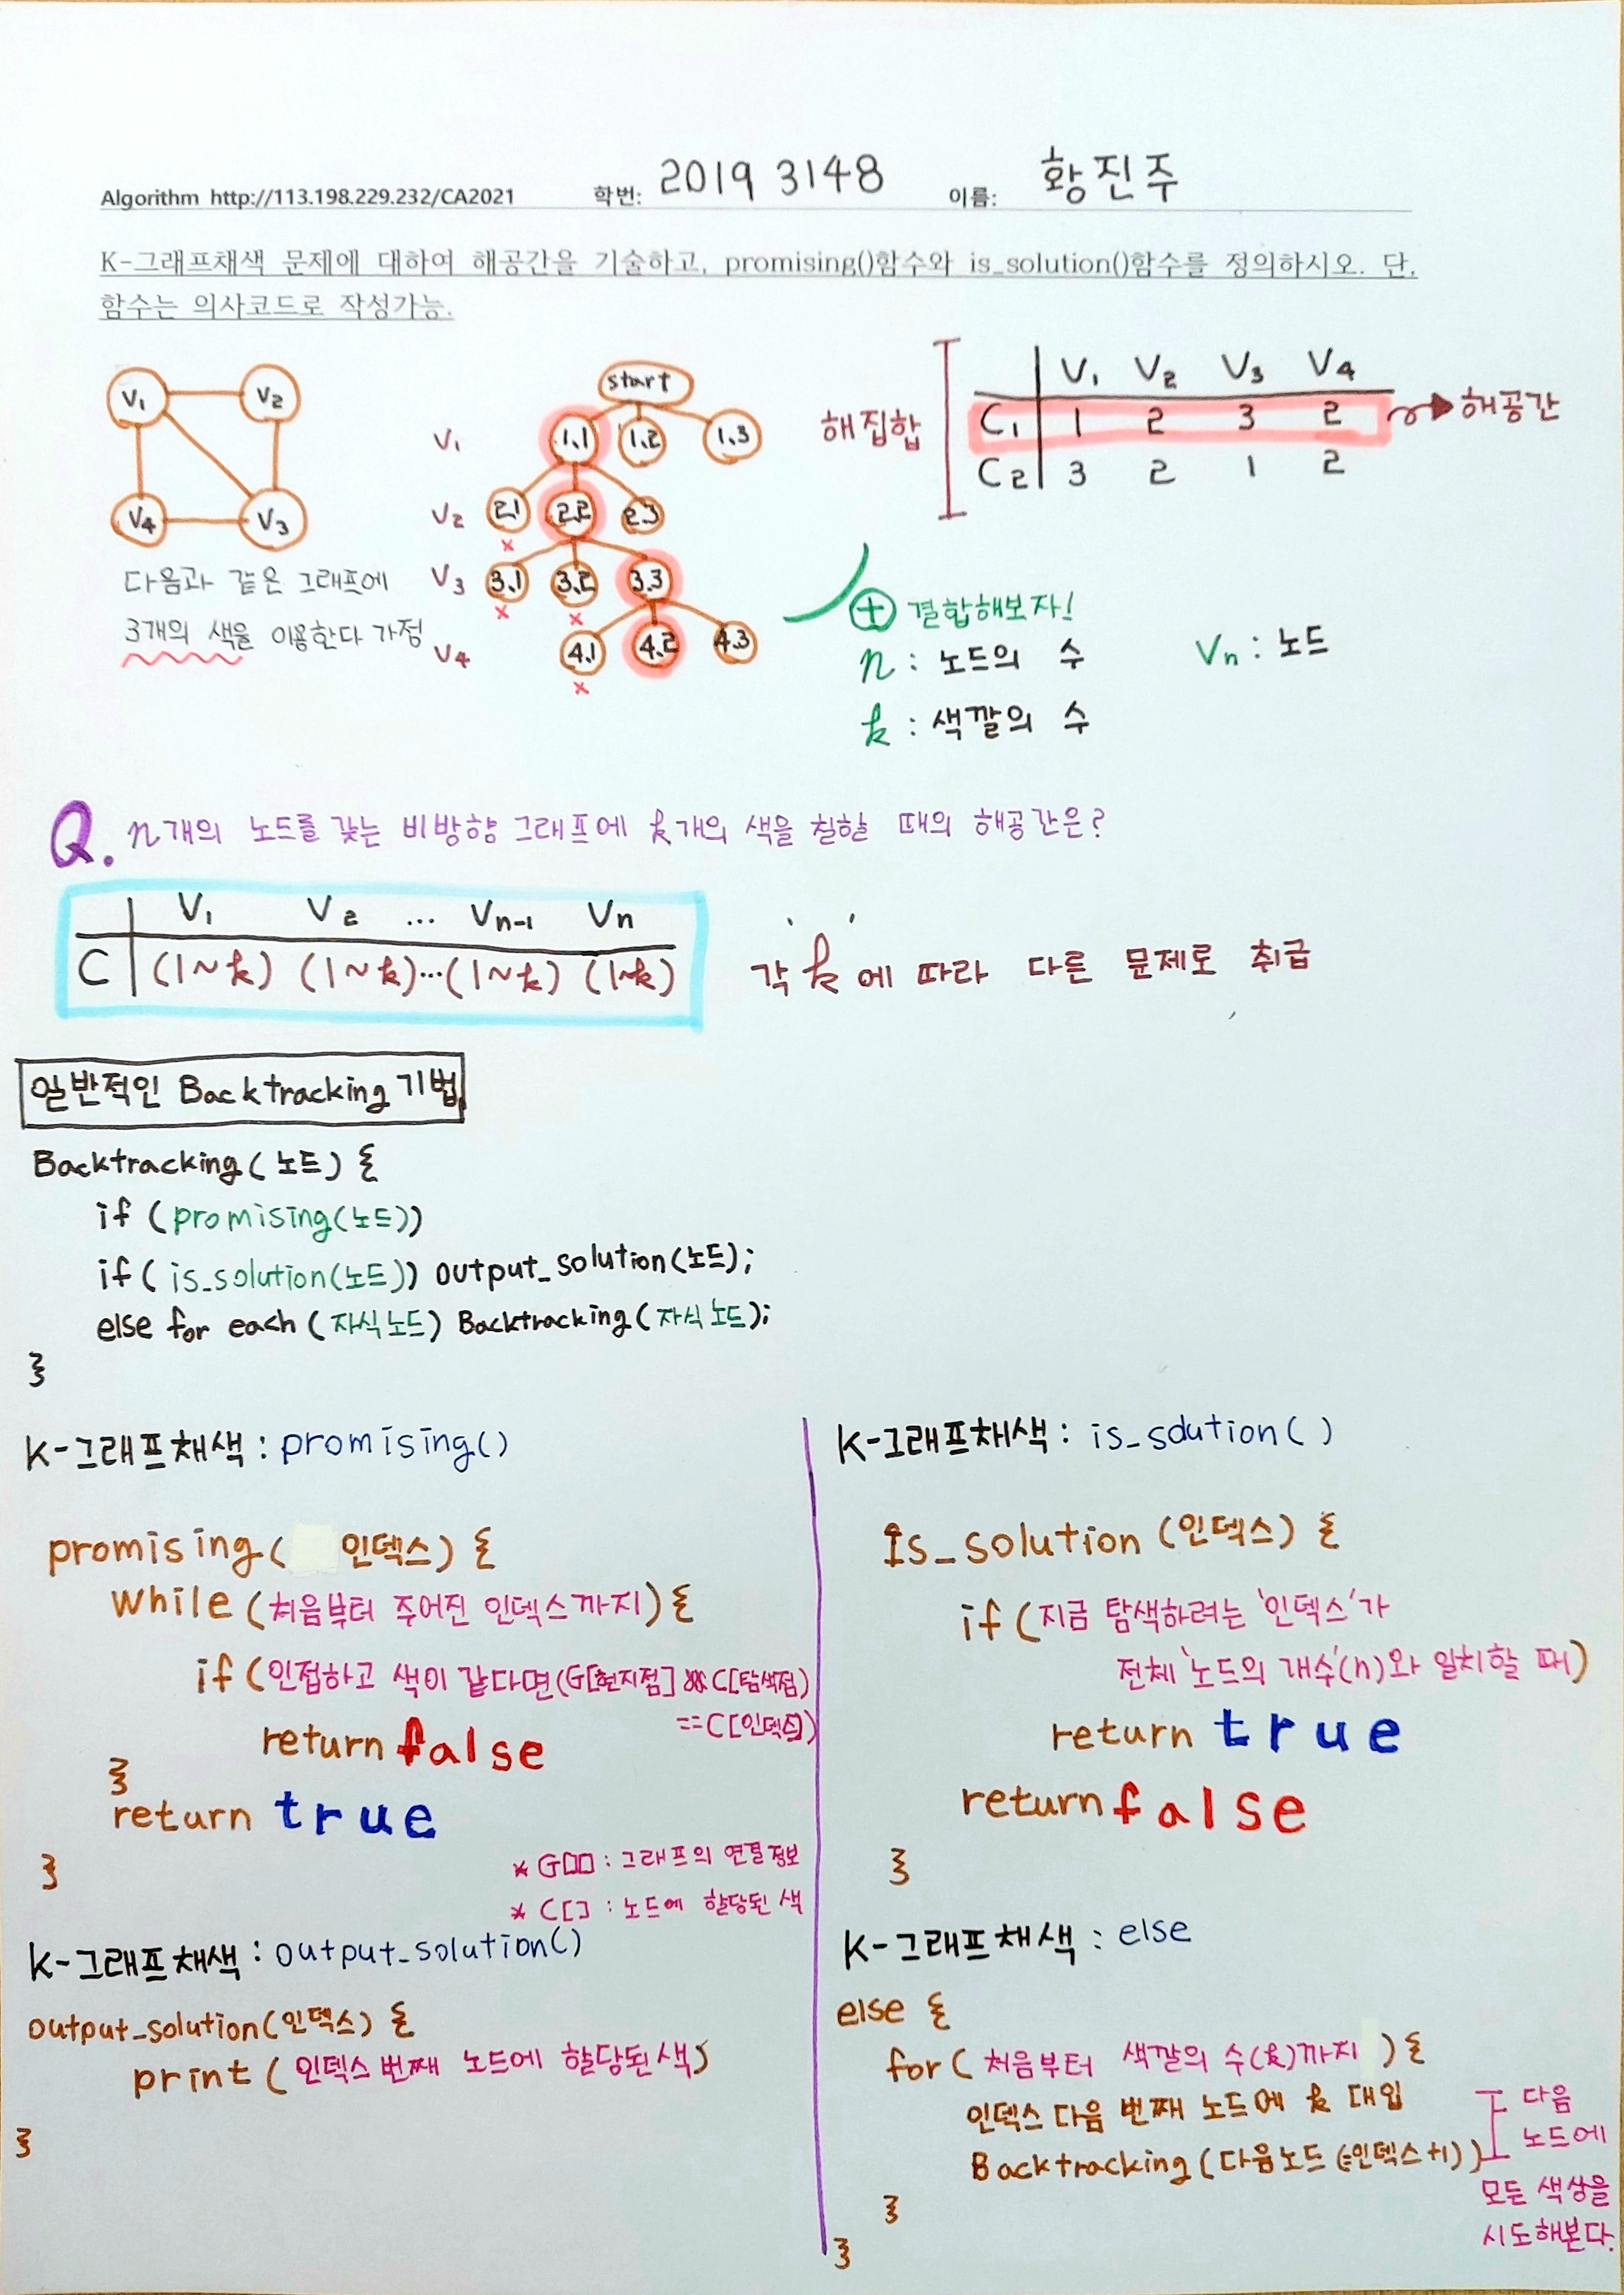 Algorithm http://113.198.229.232/CA2021 학번: 2019 3148 이름: 황진주
K-그래프채색 문제에 대하여 해공간을 기술하고, promising()함수와 is_solution()함수를 정의하시오. 단,
함수는 의사코드로 작성가능.
V1 V2
V4 V3
다음과 같은 그래프에
3개의 색을 이용한다 가정
start
V1 1.1 1.2 1.3
V2 2.1 2.2 2.3
x
V3 3.1 3.2 3.3
x x
V4 4.1 4.2 4.3
x
해집합
V1 V2 V3 V4
C1 1 2 3 2 해공간
C2 3 2 1 2
+ 결합해보자!
n : 노드의 수 Vn : 노드
k : 색깔의 수
Q. n개의 노드를 갖는 비방향 그래프에 k개의 색을 칠할 때의 해공간은?
V1 V2 ... Vn-1 Vn
C (1~k) (1~k)...(1~k) (1~k)
각 k에 따라 다른 문제로 취급
일반적인 Backtracking 기법
Backtracking(노드) {
if (promising(노드))
if( is_solution(노드)) output_solution(노드);
else for each (자식노드) Backtracking(자식노드);
}
K-그래프채색 : promising()
promising( 인덱스) {
while (처음부터 주어진 인덱스까지) {
if (인접하고 색이 같다면(G[현지점] && C[탐색점)
==C[인덱스])
return false
}
return true
}
* G[][] : 그래프의 연결정보
* C[] : 노드에 할당된 색
K-그래프채색 : output_solution()
output_solution(인덱스) {
print ( 인덱스 번째 노드에 할당된 색)
}
K-그래프채색 : is_solution( )
Is_solution (인덱스) {
if (지금 탐색하려는 '인덱스'가
전체 '노드의 개수'(n)와 일치할 때)
return true
return false
}
K-그래프채색 : else
else {
for ( 처음부터 색깔의 수(k)까지 ) {
인덱스 다음 번째 노드에 k 대입
Backtracking (다음노드 (=인덱스+1))
}
}
다음
노드에
모든 색상을
시도해본다.